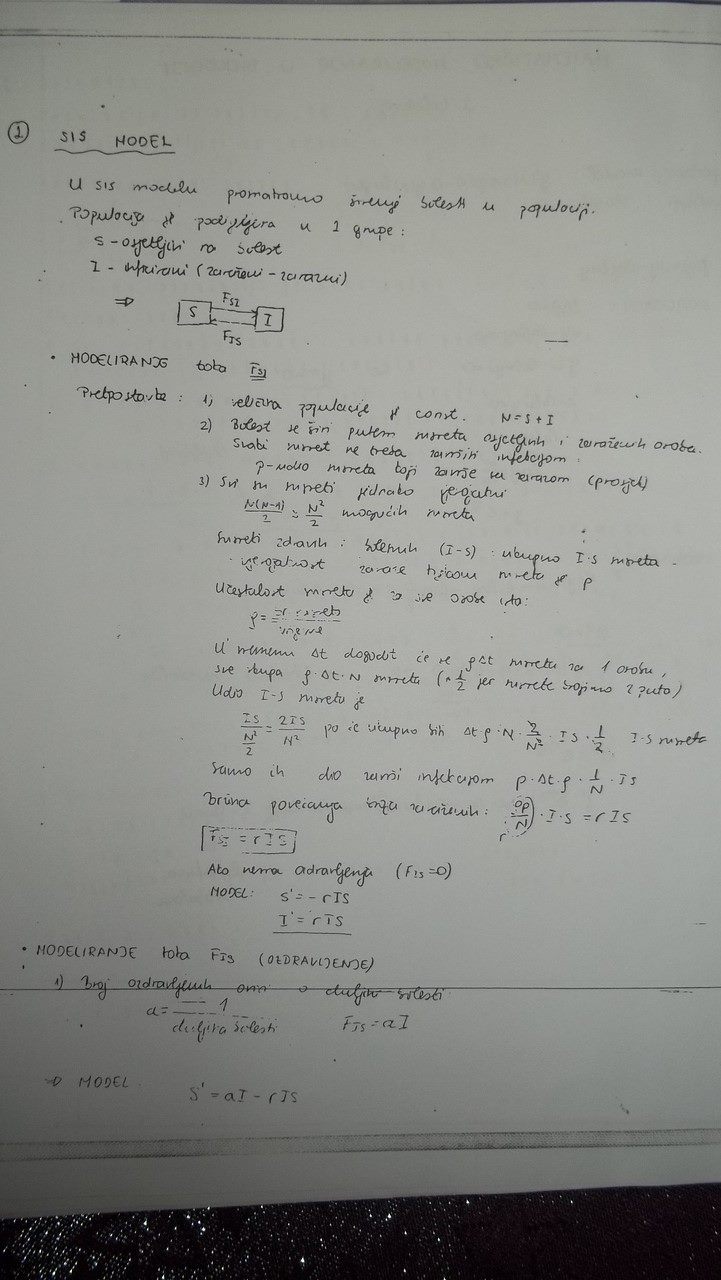 1 SIS MODEL
U SIS modelu promatramo širenje bolesti u populaciji.
Populacija je podijeljena u 2 grupe:
S - osjetljivi na bolest
I - inficirani (zaraženi - zarazni)
⇒ S F_SI I F_IS
• MODELIRANJE toka F_SI
Pretpostavke: 1) veličina populacije je const. N = S + I
2) Bolest se širi putem susreta osjetljivih i zaraženih osoba.
Svaki susret ne treba završiti infekcijom.
p - udio susreta koji završe sa zarazom (prosjek)
3) Svi su susreti jednako vjerojatni
N(N-1)/2 ≈ N²/2 mogućih susreta
Susreti zdravih i bolesnih (I-S): ukupno I·S susreta
vjerojatnost zaraze tijekom susreta je p
Učestalost susreta je za sve osobe ista:
ρ = susreta / vrijeme
U vremenu Δt dogodit će se ρΔt susreta za 1 osobu,
sve skupa ρ·Δt·N susreta (·1/2 jer susrete brojimo 2 puta)
Udio I-S susreta je
IS/(N²/2) = 2IS/N² pa će ukupno biti Δt ρ·N·2/N²·IS·1/2 I-S susreta
Samo ih dio završi infekcijom p·Δt·ρ·1/N·IS
Brzina povećanja broja zaraženih: (ρp/N)·I·S = rIS
r
F_SI = rIS
Ako nema ozdravljenja (F_IS=0)
MODEL: S' = -rIS
I' = rIS
• MODELIRANJE toka F_IS (OZDRAVLJENJE)
1) Broj ozdravljenih ovisi o duljini bolesti
a = 1/duljina bolesti F_IS = aI
⇒ MODEL S' = aI - rIS